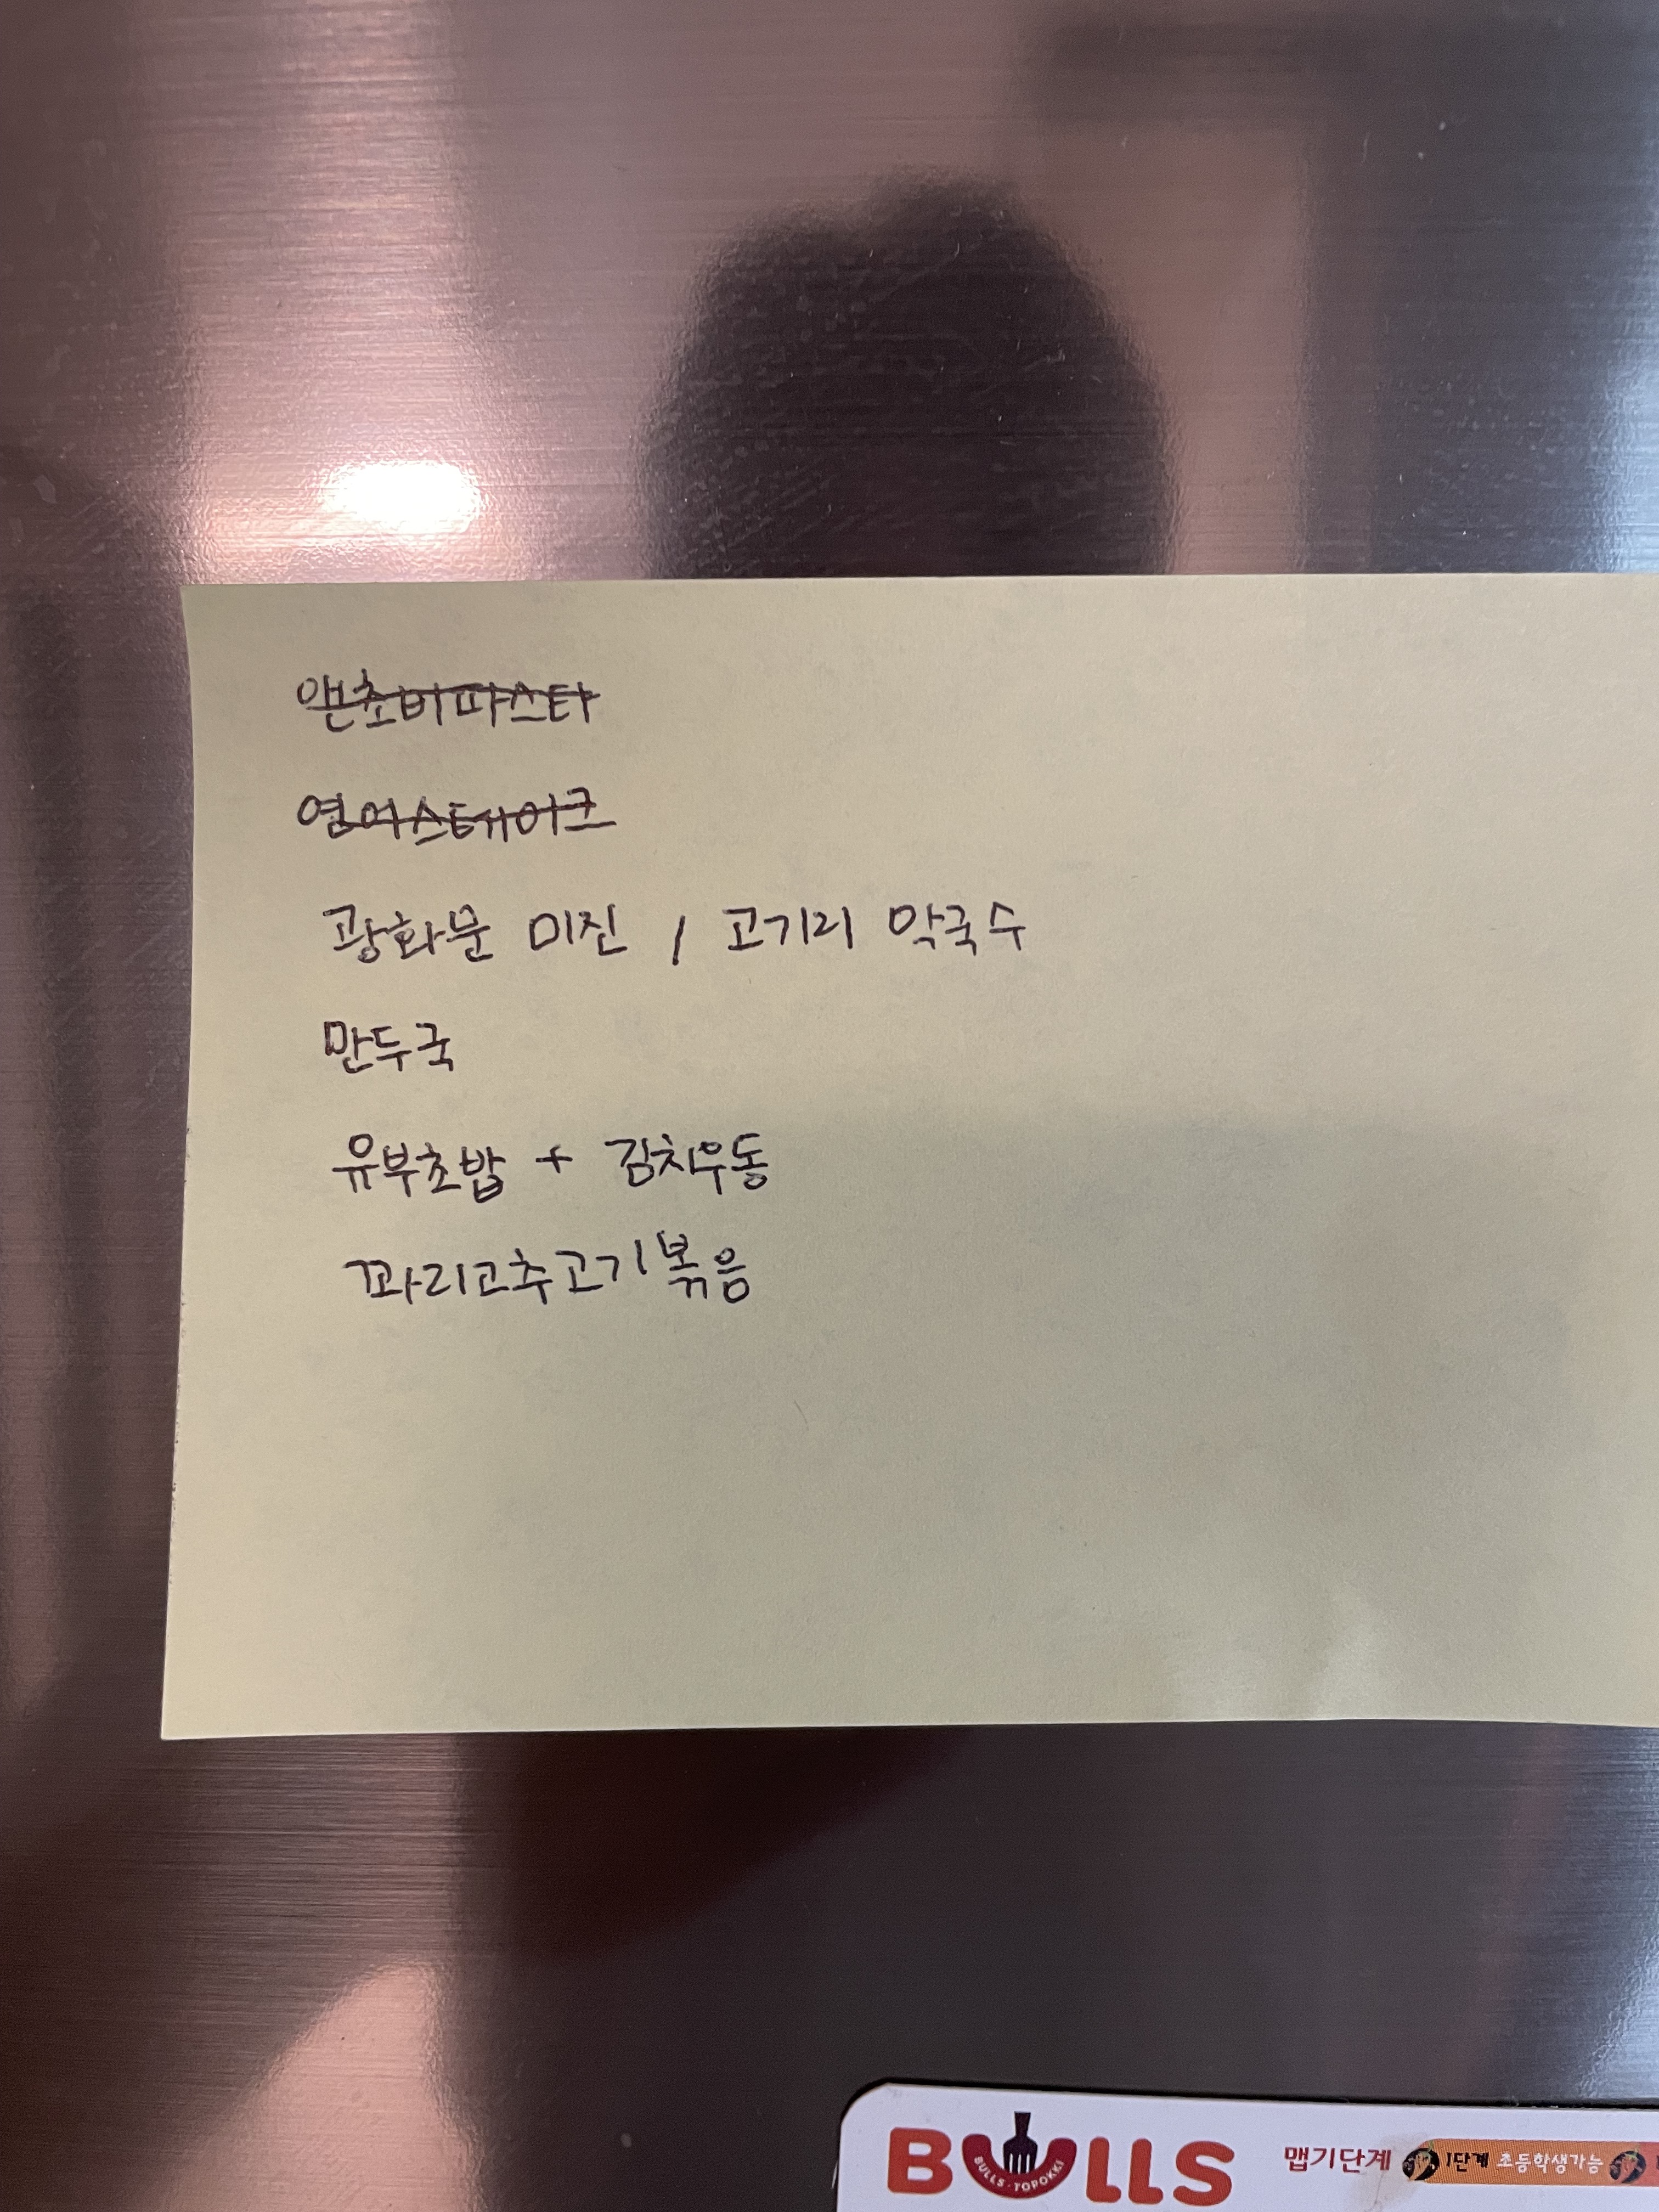 앤초비파스타
연어스테이크
광화문 미진 / 고기리 막국수
만두국
유부초밥 + 김치우동
꽈리고추고기볶음
BULLS
BULLS·TOPOKKI
맵기단계 1단계 초등학생가능